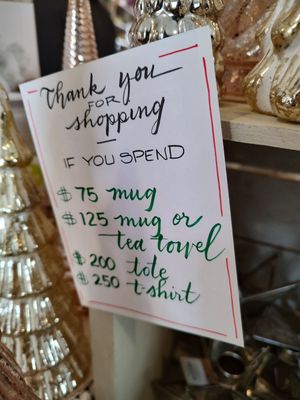 Thank you
FOR
shopping
IF YOU SPEND
$75 mug
$125 mug or
tea towel
$200 tote
$250 t-shirt